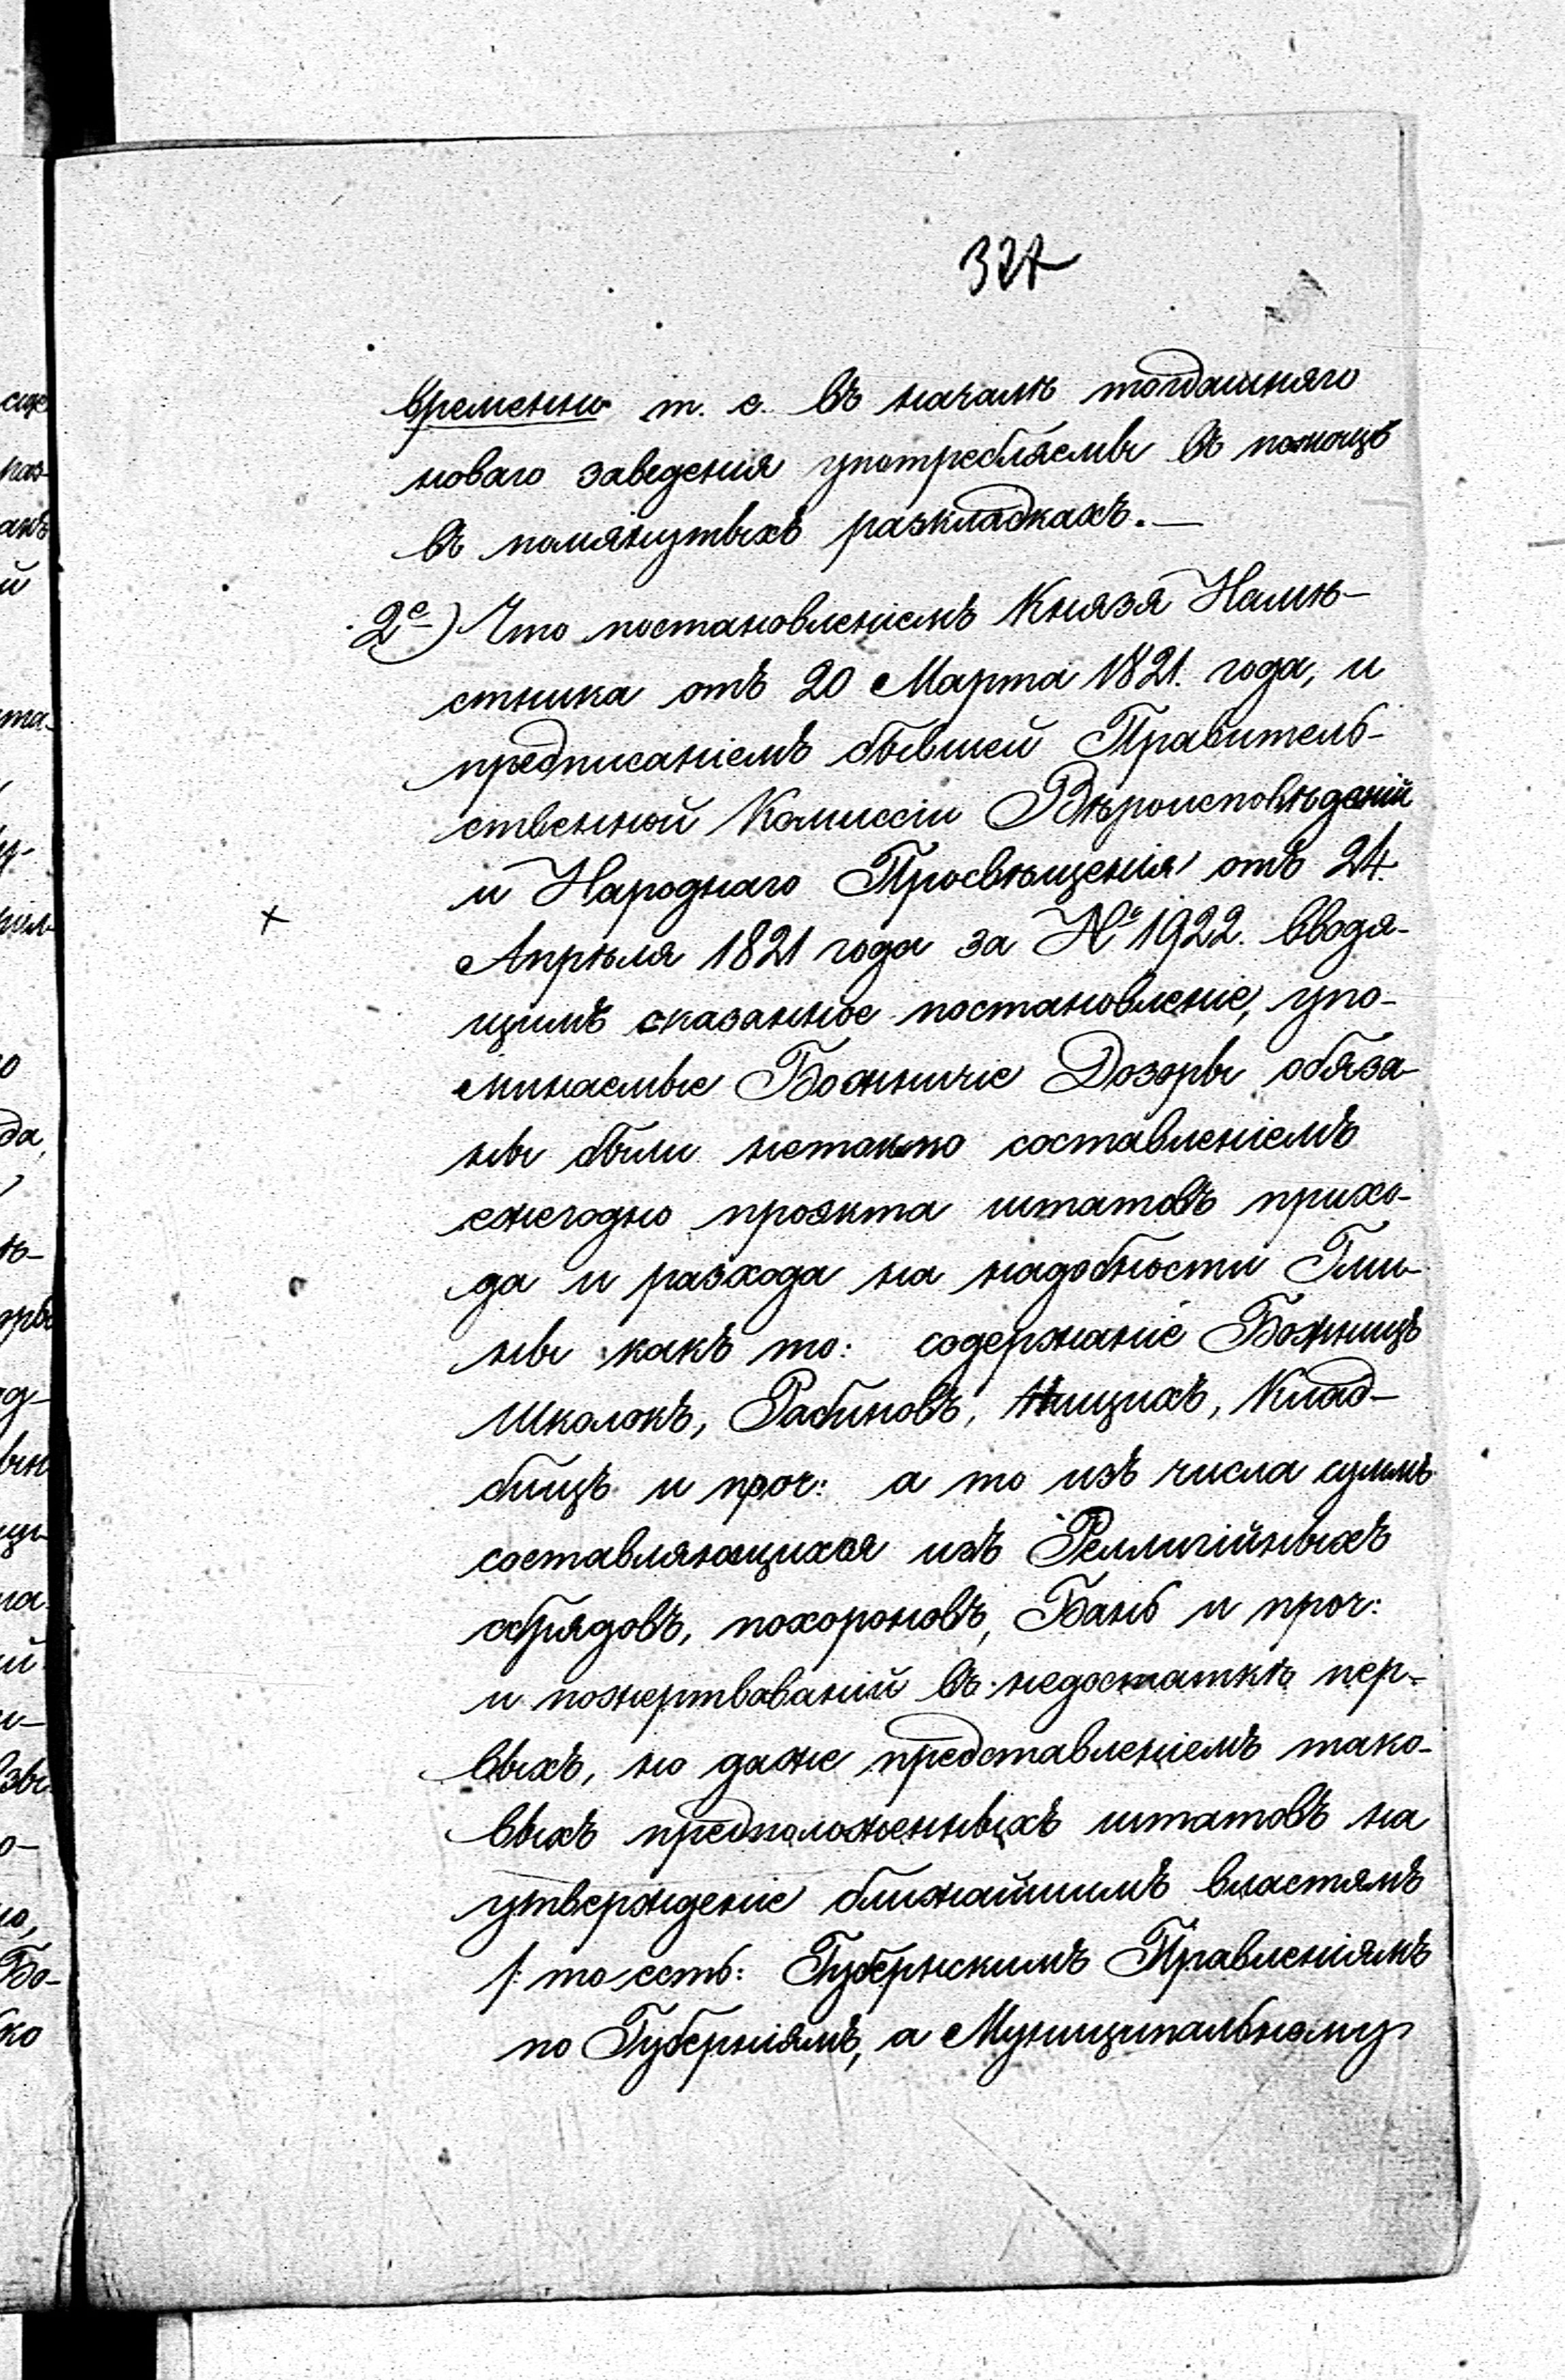 327
временно т. е. въ началѣ тогдашняго
новаго заведенія употребляемы въ помощь
въ помянутыхъ разкладкахъ.—
2е) Что постановленіемъ Князя Намѣ-
стника отъ 20 Марта 1821. года, и
предписаніемъ бывшей Правитель-
ственной Комиссіи Вѣроисповѣданій
и Народнаго Просвѣщенія отъ 24.
Апрѣля 1821 года за № 1922. вводя-
щимъ сказанное постановленіе, упо-
минаемые Божничіе Дозоры обяза-
ны были нетокмо составленіемъ
ежегодно проэкта штатовъ прихо-
да и разхода на надобности Гми-
ны какъ то: содержаніе Божницъ
Школокъ, Рабиновъ, Нищихъ, Клад-
бищъ и проч: а то изъ числа суммъ
составляющихся изъ Реллигійныхъ
обрядовъ, похороновъ, Бань и проч:
и пожертвованій въ недостаткѣ пер-
выхъ, но даже представленіемъ тако-
выхъ предположенныхъ штатовъ на
утвержденіе ближайшимъ властямъ
/: то есть: Губернскимъ Правленіямъ
по Губерніямъ, а Муниципальному